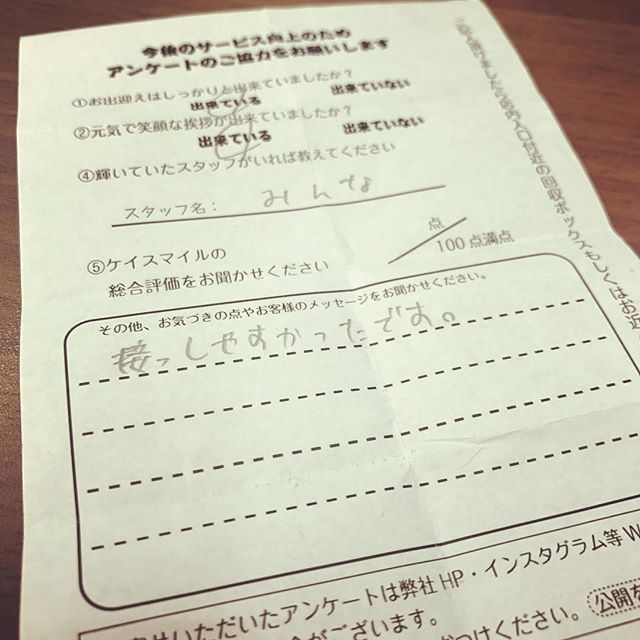 今後のサービス向上のため
アンケートのご協力をお願いします
①お出迎えはしっかりと出来ていましたか?
出来ている 出来ていない
②元気で笑顔な挨拶が出来ていましたか?
出来ている 出来ていない
④輝いていたスタッフがいれば教えてください
スタッフ名: みんな
⑤ケイスマイルの
総合評価をお聞かせください
点
100点満点
その他、お気づきの点やお客様のメッセージをお聞かせください。
接っしやすかったです。
いただいたアンケートは弊社HP・インスタグラム等W
がございます。
つけください。
公開を
回収ボックスもしくはお近